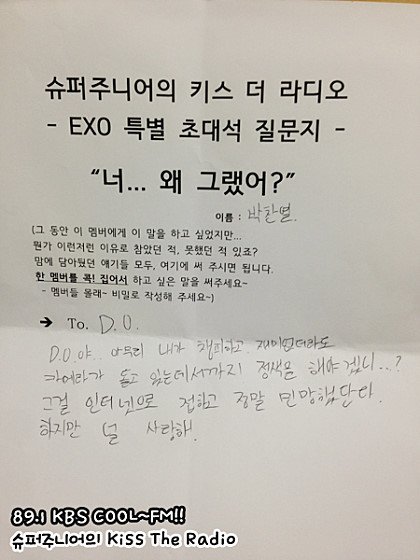 슈퍼주니어의 키스 더 라디오
- EXO 특별 초대석 질문지 -
“너... 왜 그랬어?”
이름 : 박찬열.
(그 동안 이 멤버에게 이 말을 하고 싶었지만...
뭔가 이런저런 이유로 참았던 적, 못했던 적 있죠?
맘에 담아뒀던 얘기들 모두, 여기에 써 주시면 됩니다.
한 멤버를 콕! 집어서 하고 싶은 말을 써주세요~
- 멤버들 몰래~ 비밀로 작성해 주세요~)
→ To. D.O.
D.O.야.. 아무리 내가 해피하고 재미없더라도
카메라가 돌고 있는데서까지 정색을 해야겠니...?
그걸 인터넷으로 접하고 정말 민망했단다.
하지만 널 사랑해.
89.1 KBS COOL~FM!!
슈퍼주니어의 Kiss The Radio